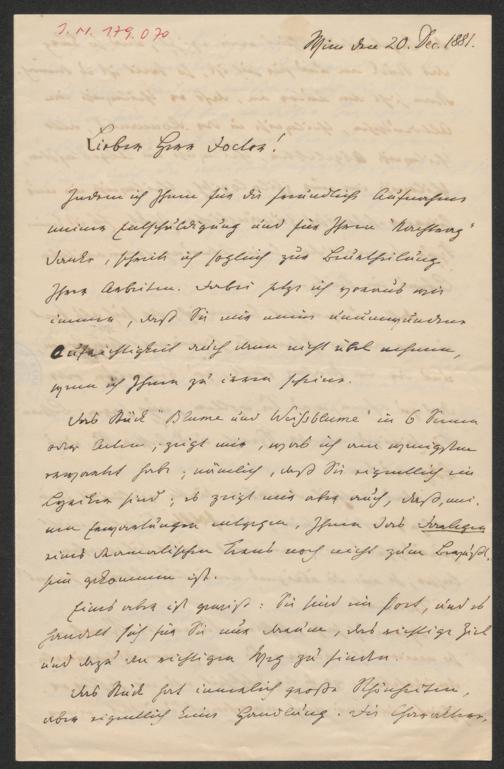 J. N. 179.070
Wien den 20. Dec. 1881.
Lieber Herr Doctor!
Indem ich Ihnen für die freundliche Aufnahme
meiner Entschuldigung und für Ihren "Nachtrag"
danke, schreite ich sogleich zur Beurtheilung
Ihrer Arbeiten. Dabei setze ich voraus wie
immer, daß Sie mir meine unumwundene
Aufrichtigkeit auch dann nicht übel nehmen,
wenn ich Ihnen zu irren scheine.
Das Stück "Blume und Weißblume" in 6 Scenen
oder Acten, zeigt mir, was ich am wenigsten
erwartet habe; nämlich, daß Sie eigentlich ein
Lyriker sind; es zeigt mir aber auch, daß, mei-
nen Erwartungen entgegen, Ihnen das
eines dramatischen Baus noch nicht zum Bewußt-
sein gekommen ist.
Eines aber ist gewiß: Sie sind ein Poet, und es
handelt sich für Sie nur darum, das richtige Ziel
und dazu den richtigen Weg zu finden.
Das Stück hat innerlich große Schönheiten,
aber eigentlich keine Handlung. Die Charaktere,